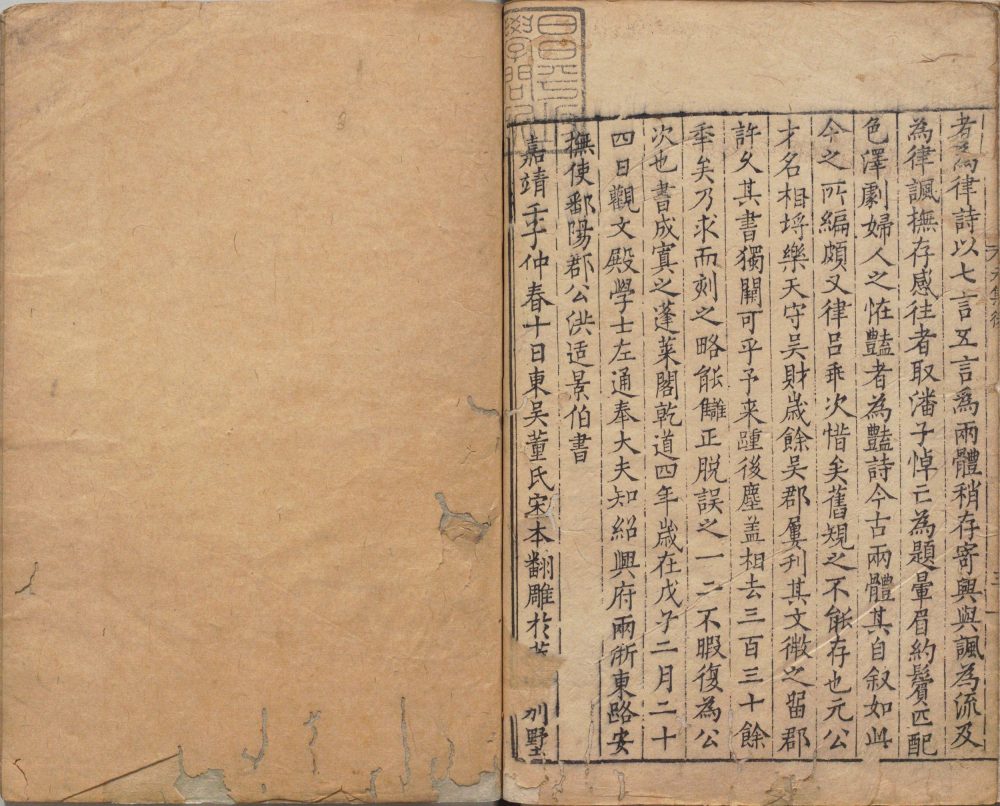 者爲律詩以七言五言爲兩體稍存寄興與諷為流及
為律諷撫存感往者取潘子悼亡為題暈眉約鬢匹配
色澤劇婦人之恠豔者為豔詩今古兩體其自叙如此
今之所編頗又律吕乖次惜矣舊規之不能存也元公
才名相埒樂天守吴財歳餘吴郡屢刋其文微之留郡
許久其書獨闕可乎予来踵後塵盖相去三百三十餘
秊矣乃求而刻之略能讎正脱誤之一二不暇復為公
次也書成寘之蓬莱閣乾道四年歳在戊子二月二十
四日觀文殿學士左通奉大夫知紹興府兩浙東路安
撫使鄱陽郡公洪适景伯書
嘉靖壬子仲春十日東吴董氏宋本翻雕於茭 别墅
昌平坂
學問所